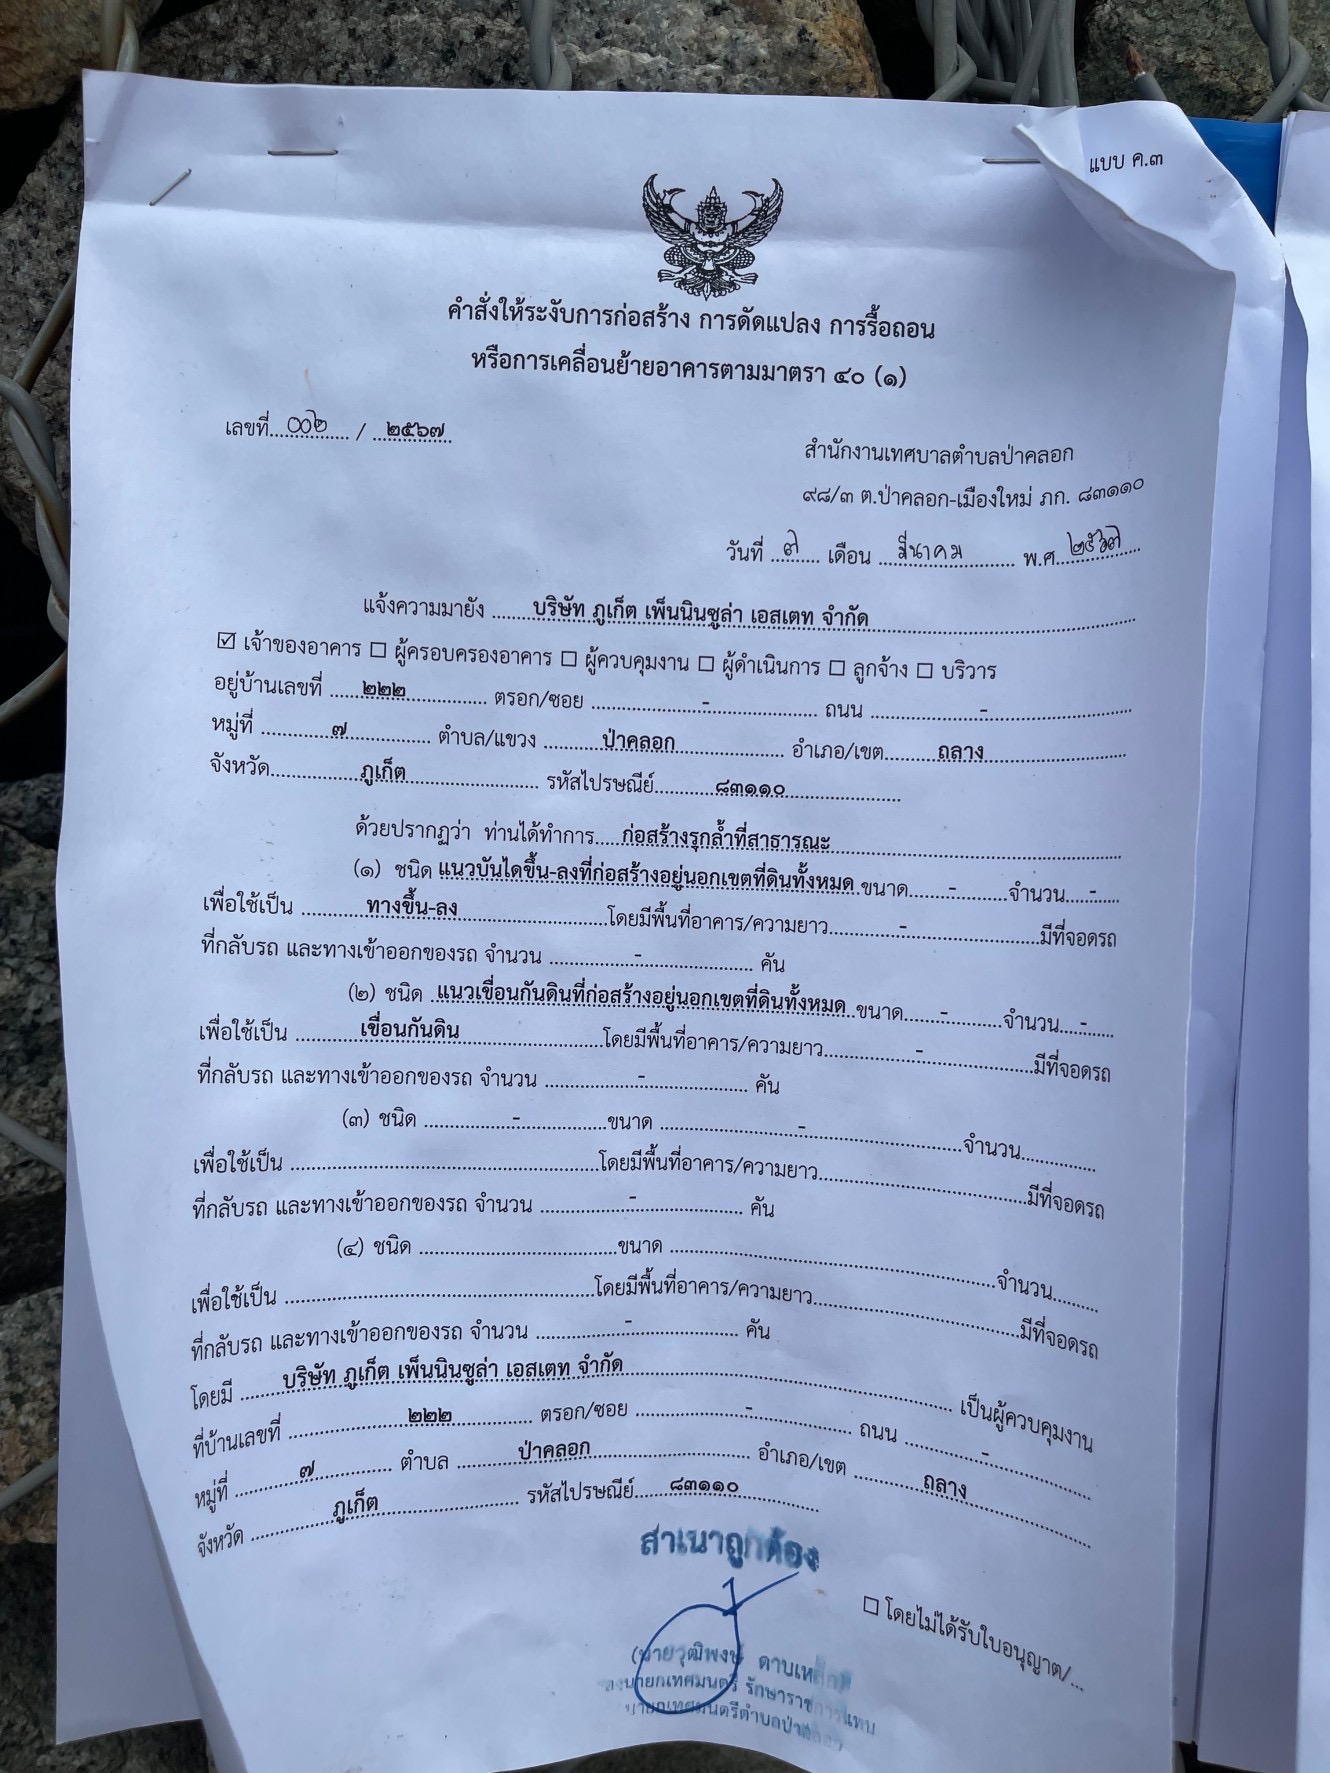 แบบ ค.๓
คำสั่งให้ระงับการก่อสร้าง การดัดแปลง การรื้อถอน
หรือการเคลื่อนย้ายอาคารตามมาตรา ๔๐ (๑)
เลขที่ ๐๐๒ / ๒๕๖๗
สำนักงานเทศบาลตำบลป่าคลอก
๙๘/๓ ต.ป่าคลอก-เมืองใหม่ ภก. ๘๓๑๑๐
วันที่ ๗ เดือน มีนาคม พ.ศ. ๒๕๖๗
แจ้งความมายัง บริษัท ภูเก็ต เพ็นนินซูล่า เอสเตท จำกัด
☑ เจ้าของอาคาร ☐ ผู้ครอบครองอาคาร ☐ ผู้ควบคุมงาน ☐ ผู้ดำเนินการ ☐ ลูกจ้าง ☐ บริวาร
อยู่บ้านเลขที่ ๒๒๒ ตรอก/ซอย - ถนน -
หมู่ที่ ๗ ตำบล/แขวง ป่าคลอก อำเภอ/เขต ถลาง
จังหวัด ภูเก็ต รหัสไปรษณีย์ ๘๓๑๑๐
ด้วยปรากฏว่า ท่านได้ทำการ ก่อสร้างรุกล้ำที่สาธารณะ
(๑) ชนิด แนวบันไดขึ้น-ลงที่ก่อสร้างอยู่นอกเขตที่ดินทั้งหมด ขนาด - จำนวน -
เพื่อใช้เป็น ทางขึ้น-ลง โดยมีพื้นที่อาคาร/ความยาว - มีที่จอดรถ
ที่กลับรถ และทางเข้าออกของรถ จำนวน - คัน
(๒) ชนิด แนวเขื่อนกันดินที่ก่อสร้างอยู่นอกเขตที่ดินทั้งหมด ขนาด - จำนวน -
เพื่อใช้เป็น เขื่อนกันดิน โดยมีพื้นที่อาคาร/ความยาว - มีที่จอดรถ
ที่กลับรถ และทางเข้าออกของรถ จำนวน - คัน
(๓) ชนิด - ขนาด - จำนวน
เพื่อใช้เป็น โดยมีพื้นที่อาคาร/ความยาว มีที่จอดรถ
ที่กลับรถ และทางเข้าออกของรถ จำนวน - คัน
(๔) ชนิด ขนาด จำนวน
เพื่อใช้เป็น โดยมีพื้นที่อาคาร/ความยาว มีที่จอดรถ
ที่กลับรถ และทางเข้าออกของรถ จำนวน - คัน
โดยมี บริษัท ภูเก็ต เพ็นนินซูล่า เอสเตท จำกัด เป็นผู้ควบคุมงาน
ที่บ้านเลขที่ ๒๒๒ ตรอก/ซอย - ถนน -
หมู่ที่ ๗ ตำบล ป่าคลอก อำเภอ/เขต ถลาง
จังหวัด ภูเก็ต รหัสไปรษณีย์ ๘๓๑๑๐
สำเนาถูกต้อง
☐ โดยไม่ได้รับใบอนุญาต/...
(นายวุฒิพงษ์
นายกเทศมนตรี รักษาราชการแทน
นายกเทศมนตรีตำบลป่าคลอก